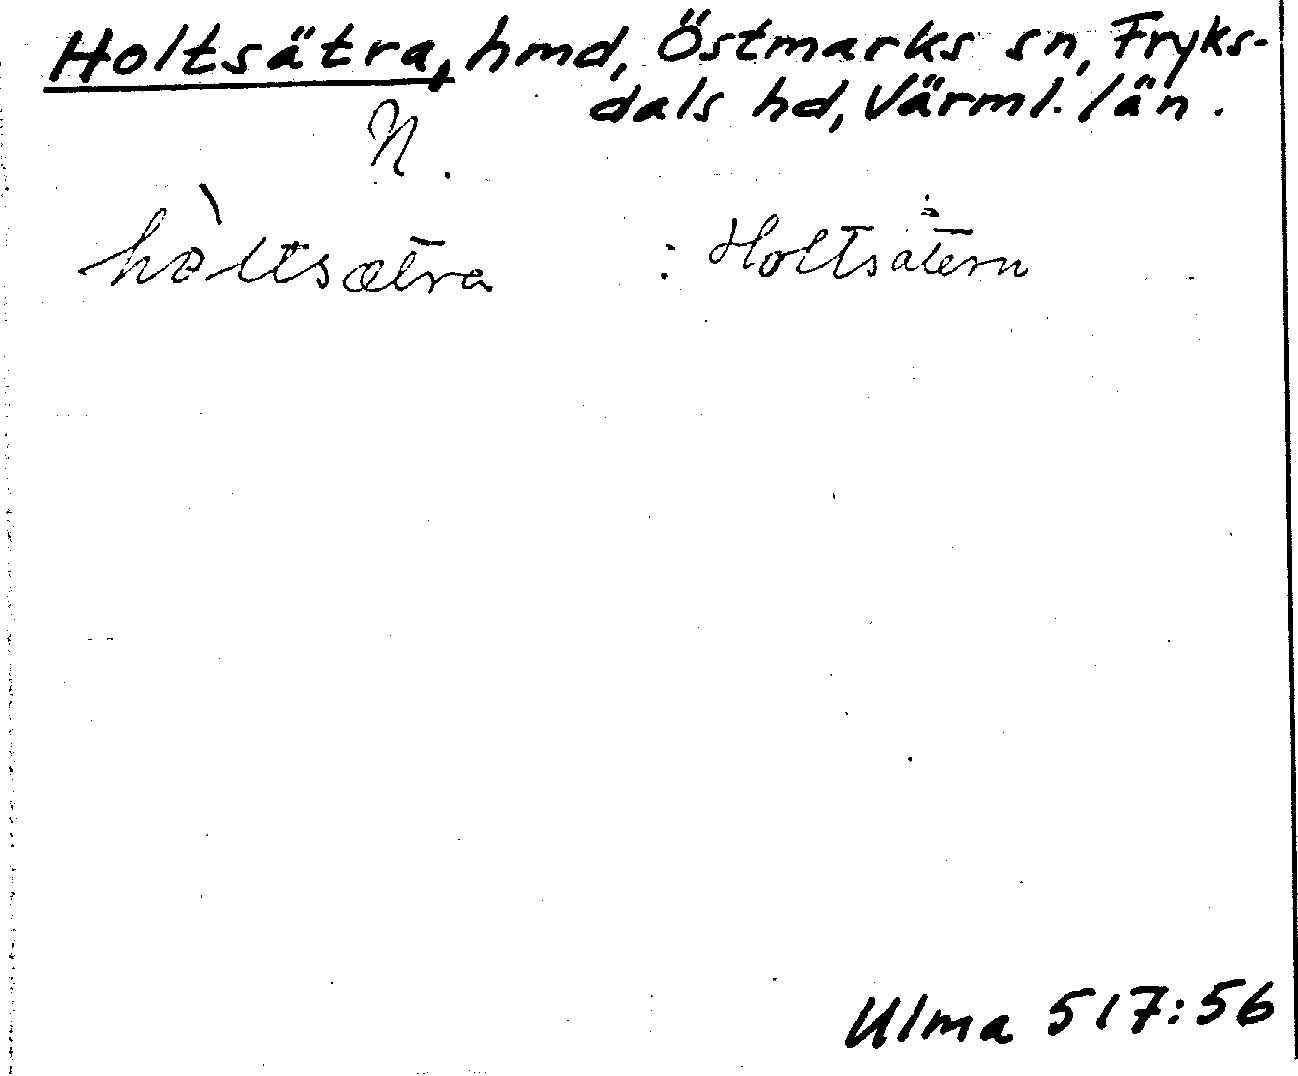 Holtsätra, hmd, Östmarks sn, Fryks-
dals hd, Värml. län.
N.
hòltsætra : Holtsätern
Ulma 517:56